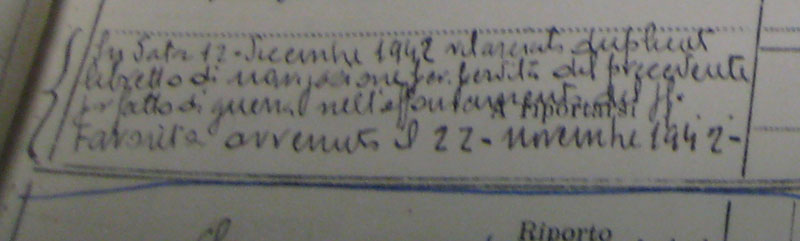 In data 12-Dicembre 1942 rilasciato duplicat
libretto di navigazione per perdita del precedente
per fatto di guerra nell'affondamento del pf.
A riportarsi
Favorita avvenuto il 22-novembre 1942-
Riporto